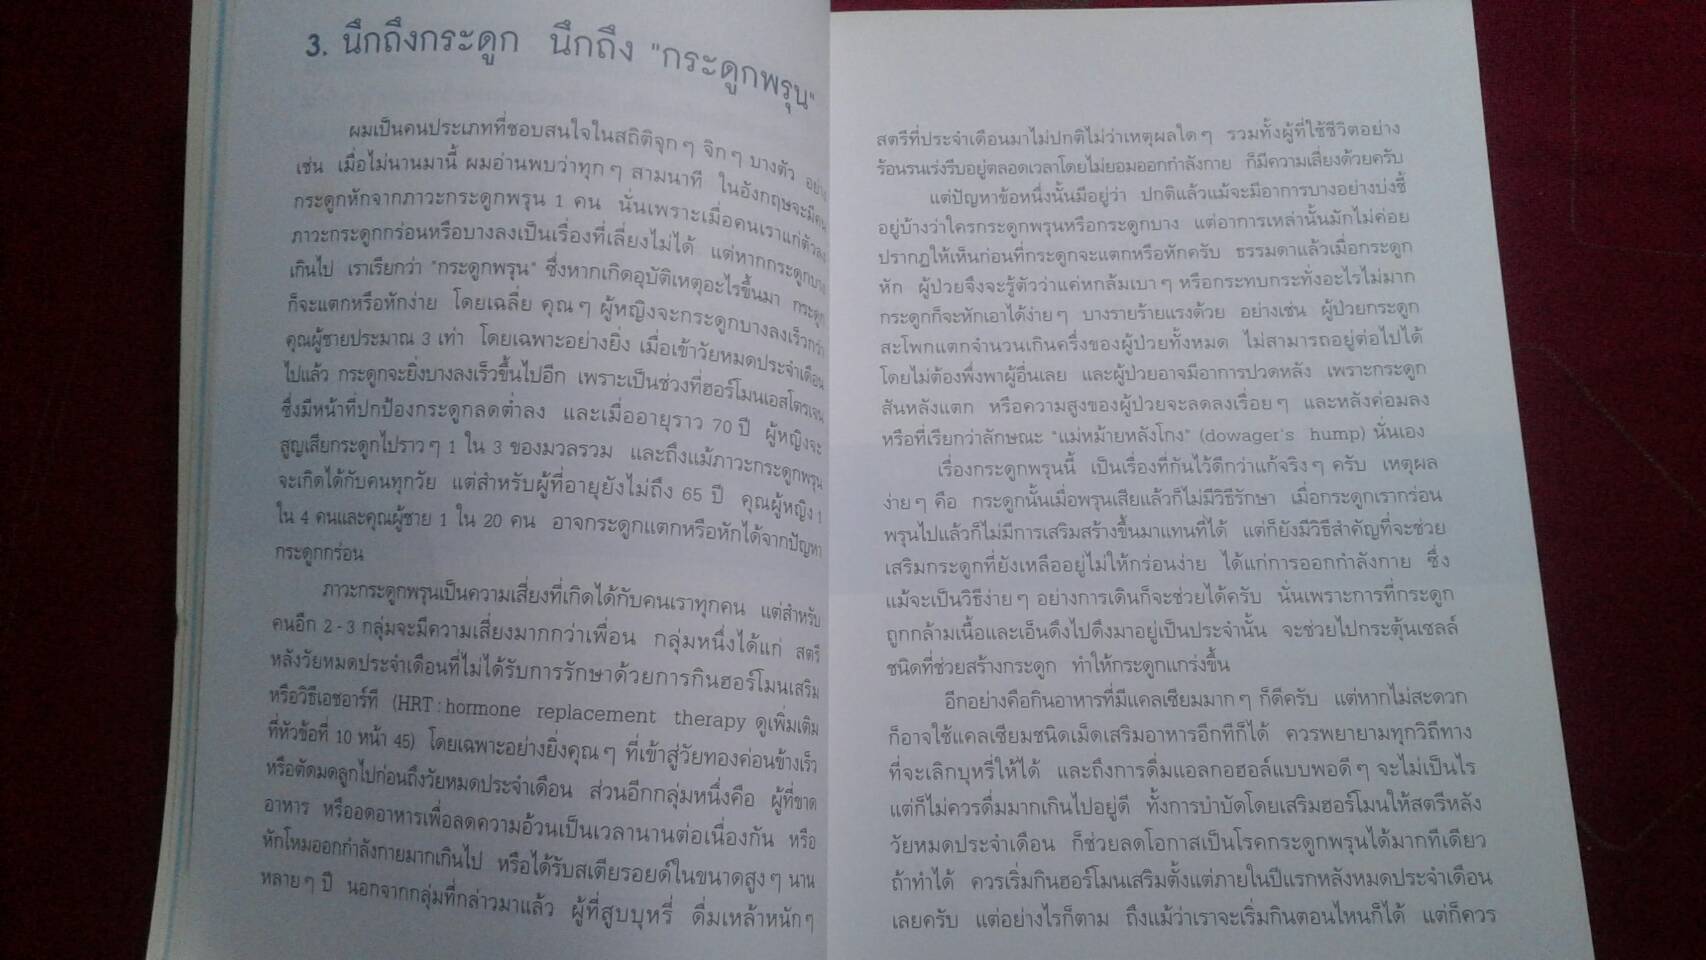 3. นึกถึงกระดูก นึกถึง "กระดูกพรุน"
ผมเป็นคนประเภทที่ชอบสนใจในสถิติจุกๆ จิกๆ บางตัว อย่าง
เช่น เมื่อไม่นานมานี้ ผมอ่านพบว่าทุกๆ สามนาที ในอังกฤษจะมีคน
กระดูกหักจากภาวะกระดูกพรุน 1 คน นั่นเพราะเมื่อคนเราแก่ตัวลง
ภาวะกระดูกกร่อนหรือบางลงเป็นเรื่องที่เลี่ยงไม่ได้ แต่หากกระดูกบาง
เกินไป เราเรียกว่า "กระดูกพรุน" ซึ่งหากเกิดอุบัติเหตุอะไรขึ้นมา กระดูก
ก็จะแตกหรือหักง่าย โดยเฉลี่ย คุณๆ ผู้หญิงจะกระดูกบางลงเร็วกว่า
คุณผู้ชายประมาณ 3 เท่า โดยเฉพาะอย่างยิ่ง เมื่อเข้าวัยหมดประจำเดือน
ไปแล้ว กระดูกจะยิ่งบางลงเร็วขึ้นไปอีก เพราะเป็นช่วงที่ฮอร์โมนเอสโตรเจน
ซึ่งมีหน้าที่ปกป้องกระดูกลดต่ำลง และเมื่ออายุราว 70 ปี ผู้หญิงจะ
สูญเสียกระดูกไปราวๆ 1 ใน 3 ของมวลรวม และถึงแม้ภาวะกระดูกพรุน
จะเกิดได้กับคนทุกวัย แต่สำหรับผู้ที่อายุยังไม่ถึง 65 ปี คุณผู้หญิง 1
ใน 4 คนและคุณผู้ชาย 1 ใน 20 คน อาจกระดูกแตกหรือหักได้จากปัญหา
กระดูกกร่อน
ภาวะกระดูกพรุนเป็นความเสี่ยงที่เกิดได้กับคนเราทุกคน แต่สำหรับ
คนอีก 2-3 กลุ่มจะมีความเสี่ยงมากกว่าเพื่อน กลุ่มหนึ่งได้แก่ สตรี
หลังวัยหมดประจำเดือนที่ไม่ได้รับการรักษาด้วยการกินฮอร์โมนเสริม
หรือวิธีเอชอาร์ที (HRT : hormone replacement therapy ดูเพิ่มเติม
ที่หัวข้อที่ 10 หน้า 45) โดยเฉพาะอย่างยิ่งคุณๆ ที่เข้าสู่วัยทองค่อนข้างเร็ว
หรือตัดมดลูกไปก่อนถึงวัยหมดประจำเดือน ส่วนอีกกลุ่มหนึ่งคือ ผู้ที่ขาด
อาหาร หรืออดอาหารเพื่อลดความอ้วนเป็นเวลานานต่อเนื่องกัน หรือ
หักโหมออกกำลังกายมากเกินไป หรือได้รับสเตียรอยด์ในขนาดสูงๆ นาน
หลายๆ ปี นอกจากกลุ่มที่กล่าวมาแล้ว ผู้ที่สูบบุหรี่ ดื่มเหล้าหนักๆ
สตรีที่ประจำเดือนมาไม่ปกติไม่ว่าเหตุผลใดๆ รวมทั้งผู้ที่ใช้ชีวิตอย่าง
ร้อนรนเร่งรีบอยู่ตลอดเวลาโดยไม่ยอมออกกำลังกาย ก็มีความเสี่ยงด้วยครับ
แต่ปัญหาข้อหนึ่งนั้นมีอยู่ว่า ปกติแล้วแม้จะมีอาการบางอย่างบ่งชี้
อยู่บ้างว่าใครกระดูกพรุนหรือกระดูกบาง แต่อาการเหล่านั้นมักไม่ค่อย
ปรากฏให้เห็นก่อนที่กระดูกจะแตกหรือหักครับ ธรรมดาแล้วเมื่อกระดูก
หัก ผู้ป่วยจึงจะรู้ตัวว่าแค่หกล้มเบาๆ หรือกระทบกระทั่งอะไรไม่มาก
กระดูกก็จะหักเอาได้ง่ายๆ บางรายร้ายแรงด้วย อย่างเช่น ผู้ป่วยกระดูก
สะโพกแตกจำนวนเกินครึ่งของผู้ป่วยทั้งหมด ไม่สามารถอยู่ต่อไปได้
โดยไม่ต้องพึ่งพาผู้อื่นเลย และผู้ป่วยอาจมีอาการปวดหลัง เพราะกระดูก
สันหลังแตก หรือความสูงของผู้ป่วยจะลดลงเรื่อยๆ และหลังค่อมลง
หรือที่เรียกว่าลักษณะ "แม่หม้ายหลังโกง" (dowager's hump) นั่นเอง
เรื่องกระดูกพรุนนี้ เป็นเรื่องที่กันไว้ดีกว่าแก้จริงๆ ครับ เหตุผล
ง่ายๆ คือ กระดูกนั้นเมื่อพรุนเสียแล้วก็ไม่มีวิธีรักษา เมื่อกระดูกเรากร่อน
พรุนไปแล้วก็ไม่มีการเสริมสร้างขึ้นมาแทนที่ได้ แต่ก็ยังมีวิธีสำคัญที่จะช่วย
เสริมกระดูกที่ยังเหลืออยู่ไม่ให้กร่อนง่าย ได้แก่การออกกำลังกาย ซึ่ง
แม้จะเป็นวิธีง่ายๆ อย่างการเดินก็จะช่วยได้ครับ นั่นเพราะการที่กระดูก
ถูกกล้ามเนื้อและเอ็นดึงไปดึงมาอยู่เป็นประจำนั้น จะช่วยไปกระตุ้นเซลล์
ชนิดที่ช่วยสร้างกระดูก ทำให้กระดูกแกร่งขึ้น
อีกอย่างคือกินอาหารที่มีแคลเซียมมากๆ ก็ดีครับ แต่หากไม่สะดวก
ก็อาจใช้แคลเซียมชนิดเม็ดเสริมอาหารอีกทีก็ได้ ควรพยายามทุกวิถีทาง
ที่จะเลิกบุหรี่ให้ได้ และถึงการดื่มแอลกอฮอล์แบบพอดีๆ จะไม่เป็นไร
แต่ก็ไม่ควรดื่มมากเกินไปอยู่ดี ทั้งการบำบัดโดยเสริมฮอร์โมนให้สตรีหลัง
วัยหมดประจำเดือน ก็ช่วยลดโอกาสเป็นโรคกระดูกพรุนได้มากทีเดียว
ถ้าทำได้ ควรเริ่มกินฮอร์โมนเสริมตั้งแต่ภายในปีแรกหลังหมดประจำเดือน
เลยครับ แต่อย่างไรก็ตาม ถึงแม้ว่าเราจะเริ่มกินตอนไหนก็ได้ แต่ก็ควร